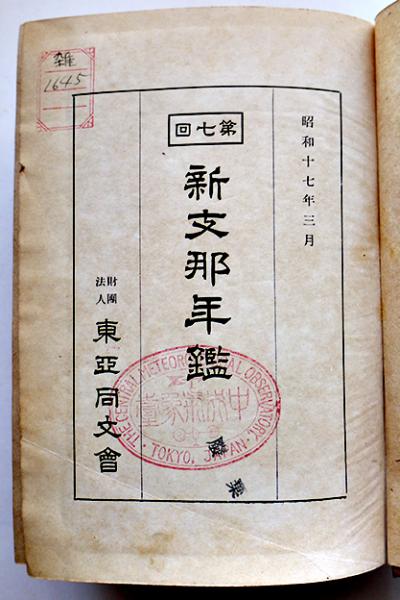 昭和十七年三月
第七回
新支那年鑑
財團法人
東亞同文會
雜
1645
THE CENTRAL METEOROLOGICAL OBSERVATORY,
TOKYO, JAPAN
中央氣象臺